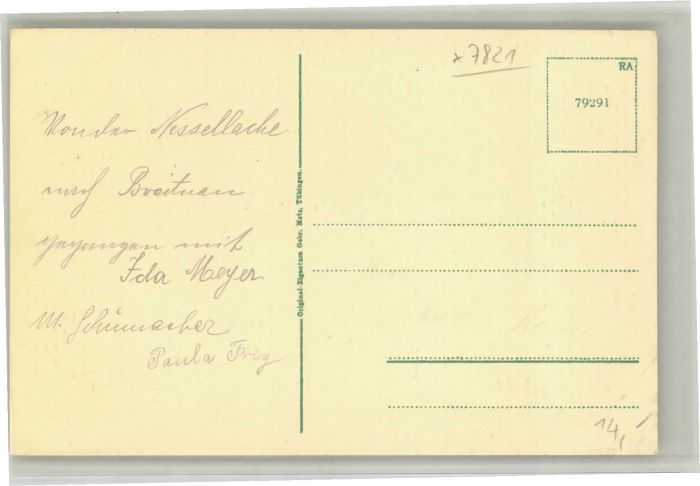 x 7821
RA
79291
Von der Nessellache
nach Breitnau
gegangen mit
Ida Meyer
M. Schumacher
Paula Frey
Original-Eigentum Gebr. Metz, Tübingen.
14,